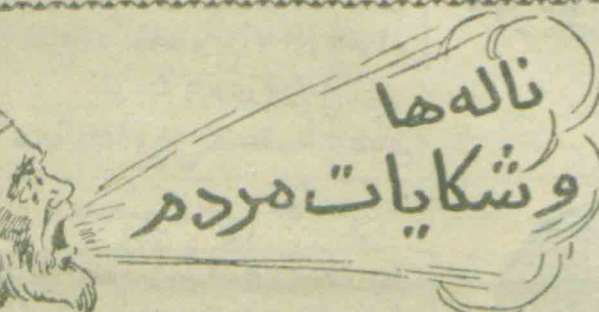 ناله‌ها
و شکایات مردم